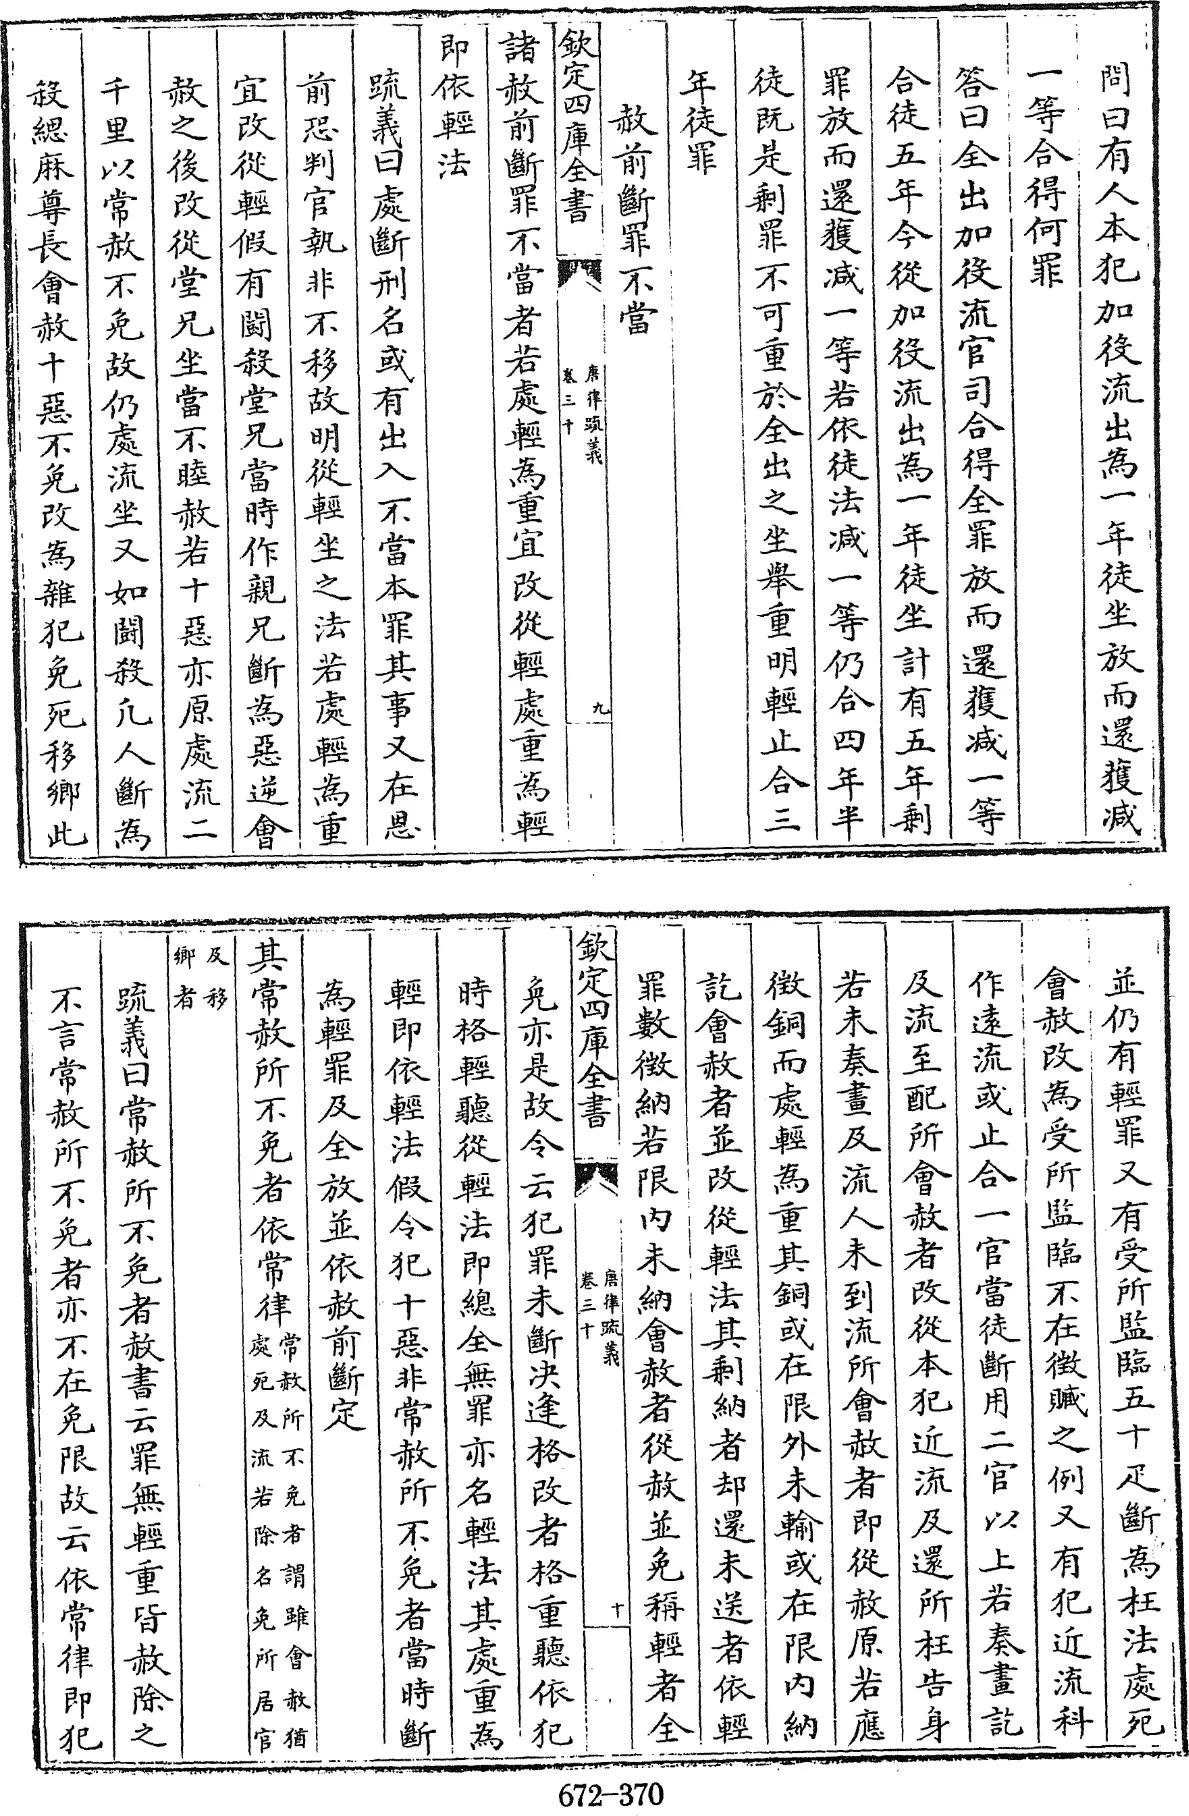 問曰有人本犯加役流出為一年徒坐放而還獲減
一等合得何罪
答曰全出加役流官司合得全罪放而還獲減一等
合徒五年今從加役流出為一年徒坐計有五年剩
罪放而還獲減一等若依徒法減一等仍合四年半
徒既是剩罪不可重於全出之坐舉重明輕止合三
年徒罪
赦前斷罪不當
欽定四庫全書
唐律疏義
卷三十
九
諸赦前斷罪不當者若處輕為重宜改從輕處重為輕
即依輕法
疏義曰處斷刑名或有出入不當本罪其事又在恩
前恐判官執非不移故明從輕坐之法若處輕為重
宜改從輕假有鬬殺堂兄當時作親兄斷為惡逆會
赦之後改從堂兄坐當不睦赦若十惡亦原處流二
千里以常赦不免故仍處流坐又如鬬殺凡人斷為
殺緦麻尊長會赦十惡不免改為雜犯免死移鄉此
並仍有輕罪又有受所監臨五十疋斷為枉法處死
會赦改為受所監臨不在徵贓之例又有犯近流科
作遠流或止合一官當徒斷用二官以上若奏畫訖
及流至配所會赦者改從本犯近流及還所枉告身
若未奏畫及流人未到流所會赦者即從赦原若應
徵銅而處輕為重其銅或在限外未輸或在限內納
訖會赦者並改從輕法其剩納者却還未送者依輕
罪數徵納若限內未納會赦者從赦並免稱輕者全
欽定四庫全書
唐律疏義
卷三十
十
免亦是故令云犯罪未斷決逢格改者格重聽依犯
時格輕聽從輕法即總全無罪亦名輕法其處重為
輕即依輕法假令犯十惡非常赦所不免者當時斷
為輕罪及全放並依赦前斷定
其常赦所不免者依常律常赦所不免者謂雖會赦猶
處死及流若除名免所居官
及移
鄉者
疏義曰常赦所不免者赦書云罪無輕重皆赦除之
不言常赦所不免者亦不在免限故云依常律即犯
672-370